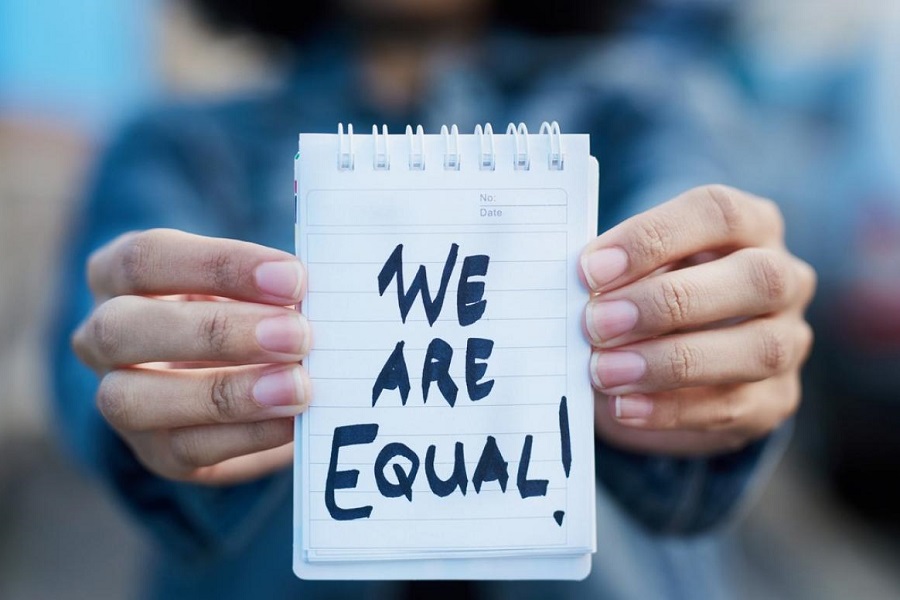 No:
Date
WE
ARE
EQUAL!